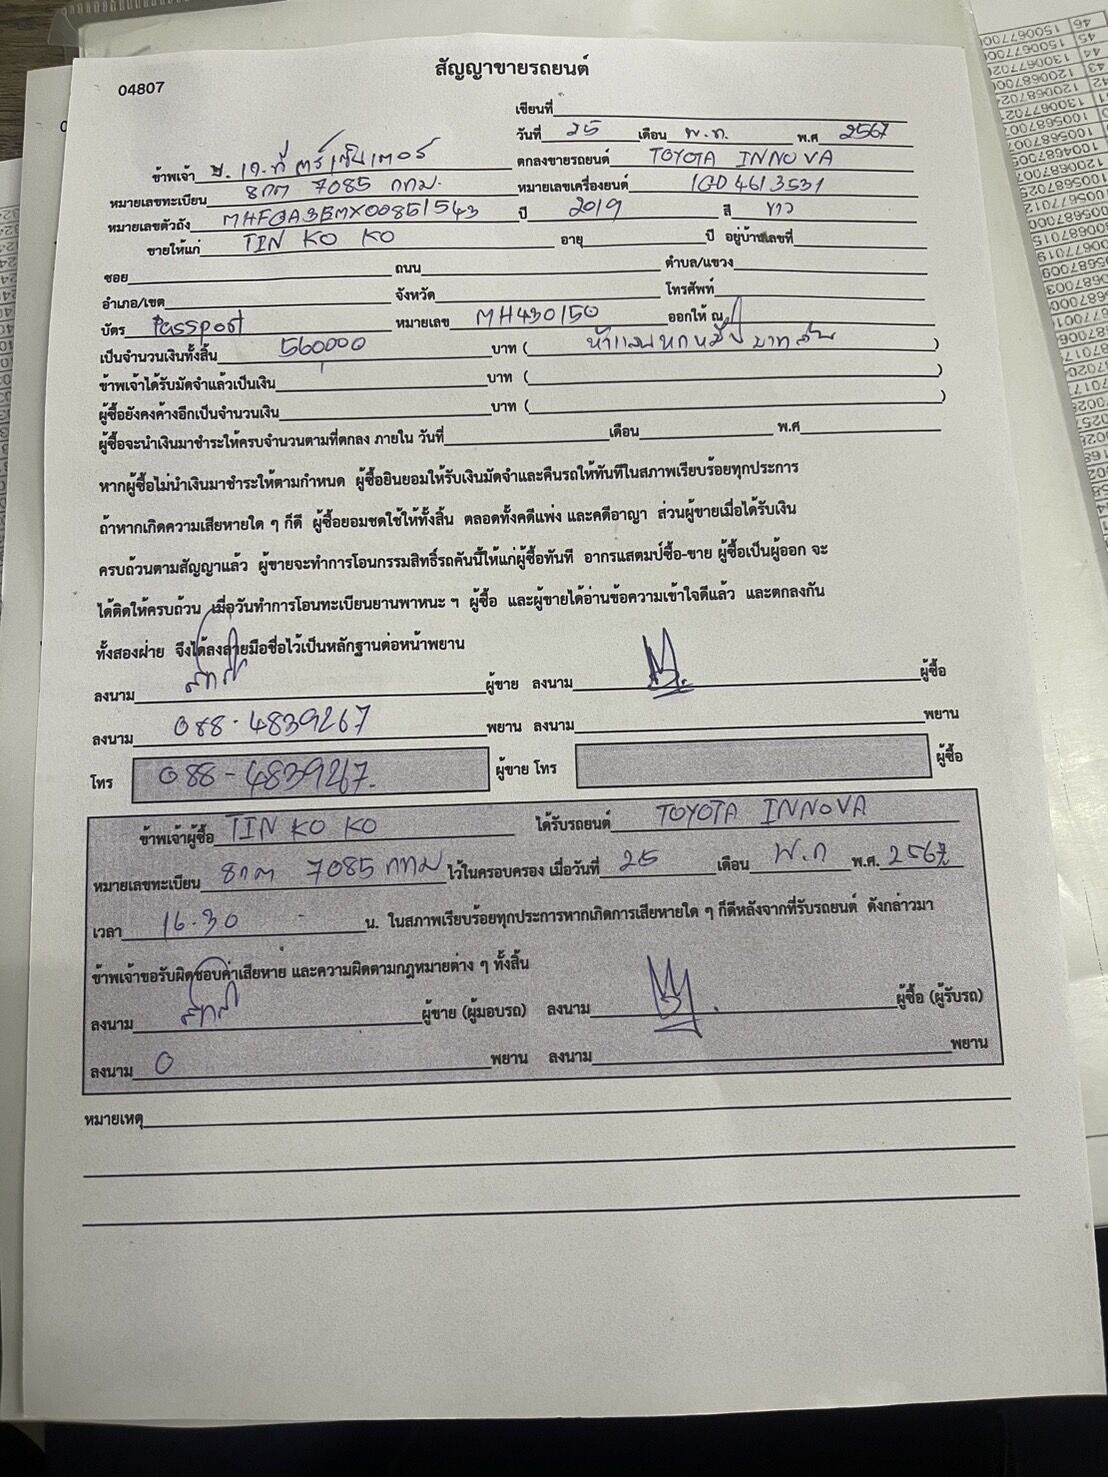 สัญญาขายรถยนต์
04807
เขียนที่
วันที่ 25 เดือน พ.ค. พ.ศ 2567
ข้าพเจ้า ตกลงขายรถยนต์ TOYOTA INNOVA
หมายเลขทะเบียน 8กต 7085 กทม. หมายเลขเครื่องยนต์ 1GD4613531
หมายเลขตัวถัง MHFGA3EMX00851543 ปี 2019 สี ขาว
ขายให้แก่ TIN KO KO อายุ ปี อยู่บ้านเลขที่
ซอย ถนน ตำบล/แขวง
อำเภอ/เขต จังหวัด โทรศัพท์
บัตร Passport หมายเลข MH430150 ออกให้ ณ
เป็นจำนวนเงินทั้งสิ้น 560000 บาท ( ห้าแสนหกหมื่นบาทถ้วน )
ข้าพเจ้าได้รับมัดจำแล้วเป็นเงิน บาท ( )
ผู้ซื้อยังคงค้างอีกเป็นจำนวนเงิน บาท ( )
ผู้ซื้อจะนำเงินมาชำระให้ครบจำนวนตามที่ตกลง ภายใน วันที่ เดือน พ.ศ
หากผู้ซื้อไม่นำเงินมาชำระให้ตามกำหนด ผู้ซื้อยินยอมให้รับเงินมัดจำและคืนรถให้ทันทีในสภาพเรียบร้อยทุกประการ
ถ้าหากเกิดความเสียหายใด ๆ ก็ดี ผู้ซื้อยอมชดใช้ให้ทั้งสิ้น ตลอดทั้งคดีแพ่ง และคดีอาญา ส่วนผู้ขายเมื่อได้รับเงิน
ครบถ้วนตามสัญญาแล้ว ผู้ขายจะทำการโอนกรรมสิทธิ์รถคันนี้ให้แก่ผู้ซื้อทันที อากรแสตมป์ซื้อ-ขาย ผู้ซื้อเป็นผู้ออก จะ
ได้ติดให้ครบถ้วน เมื่อวันทำการโอนทะเบียนยานพาหนะ ฯ ผู้ซื้อ และผู้ขายได้อ่านข้อความเข้าใจดีแล้ว และตกลงกัน
ทั้งสองฝ่าย จึงได้ลงลายมือชื่อไว้เป็นหลักฐานต่อหน้าพยาน
ลงนาม ผู้ขาย ลงนาม ผู้ซื้อ
ลงนาม 088-4839267 พยาน ลงนาม พยาน
โทร 088-4839267. ผู้ขาย โทร ผู้ซื้อ
ข้าพเจ้าผู้ซื้อ TIN KO KO ได้รับรถยนต์ TOYOTA INNOVA
หมายเลขทะเบียน 8กต 7085 กทม ไว้ในครอบครอง เมื่อวันที่ 25 เดือน พ.ค พ.ศ. 2567
เวลา 16.30 น. ในสภาพเรียบร้อยทุกประการหากเกิดการเสียหายใด ๆ ก็ดีหลังจากที่รับรถยนต์ ดังกล่าวมา
ข้าพเจ้าขอรับผิดชอบค่าเสียหาย และความผิดตามกฎหมายต่าง ๆ ทั้งสิ้น
ลงนาม ผู้ขาย (ผู้มอบรถ) ลงนาม ผู้ซื้อ (ผู้รับรถ)
ลงนาม 0 พยาน ลงนาม พยาน
หมายเหตุ